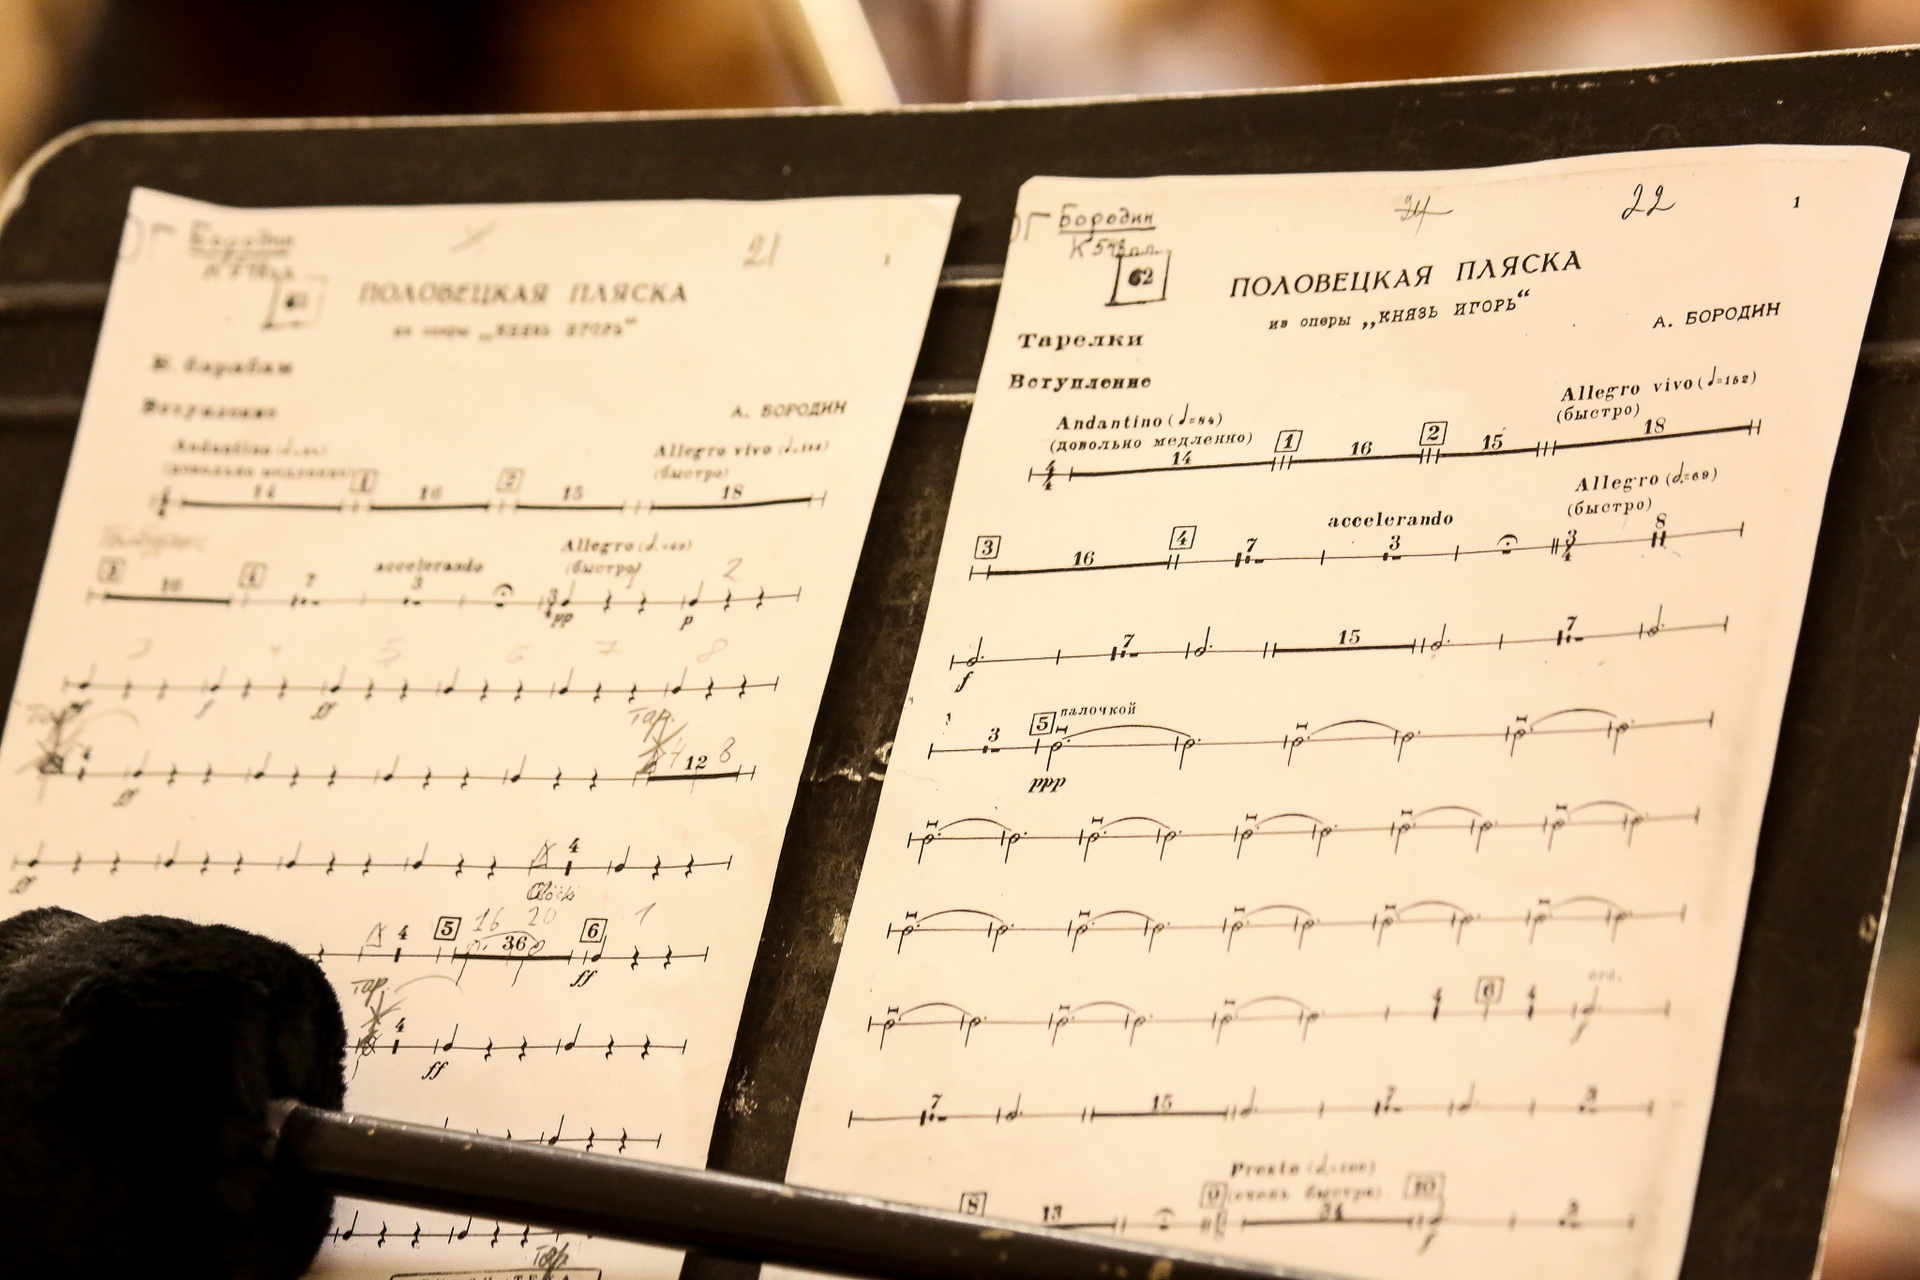 Бородин
21
ПОЛОВЕЦКАЯ ПЛЯСКА
из оперы „КНЯЗЬ ИГОРЬ“
Б. барабан
Вступление
А. БОРОДИН
Andantino
Allegro vivo
(довольно медленно)
(быстро)
14 1 16 2 15 18
Allegro
accelerando (быстро)
3 16 4 7 3 3 4 1 2
pp p
3 4 5 6 7 8
f ff
Тар. Тар.
4 12 8
ff
4
ff
4 5 16 20 36 6 1
ff
Тар.
4
ff
Тар.
Бородин
24
22
1
62
ПОЛОВЕЦКАЯ ПЛЯСКА
из оперы „КНЯЗЬ ИГОРЬ“
А. БОРОДИН
Тарелки
Вступление
Andantino (♩=84)
Allegro vivo (♩=152)
(довольно медленно)
(быстро)
4 4 14 1 16 2 15 18
Allegro (𝅗𝅥.=69)
accelerando (быстро)
3 16 4 7 3 3 4 8
7 15 7
f
3 5 палочкой
ppp
ord.
4 6 4
f
7 15 7 3
Presto
(очень быстро)
8 13 9 34 10 3
f